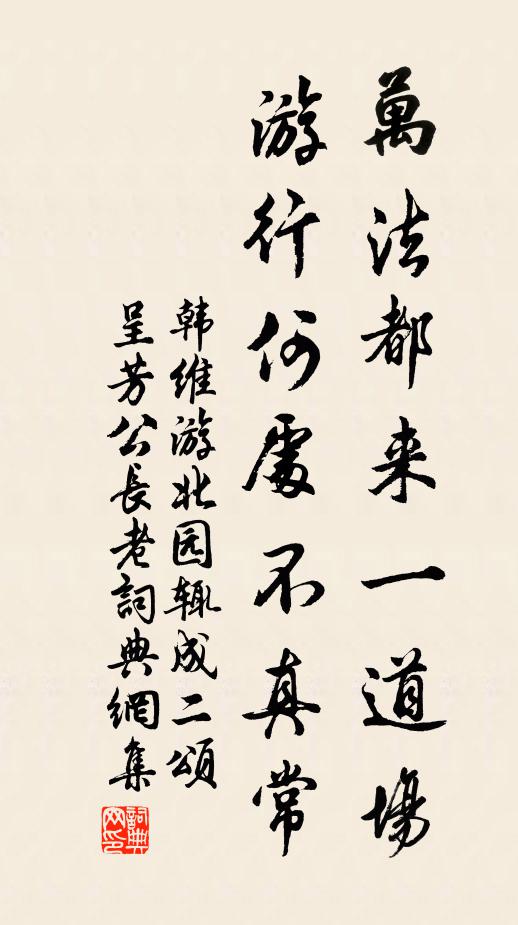 萬法都来一道場
游行何處不真常
韩維游北园辄成二頌
呈芳公長老詞典網集
詞典网印